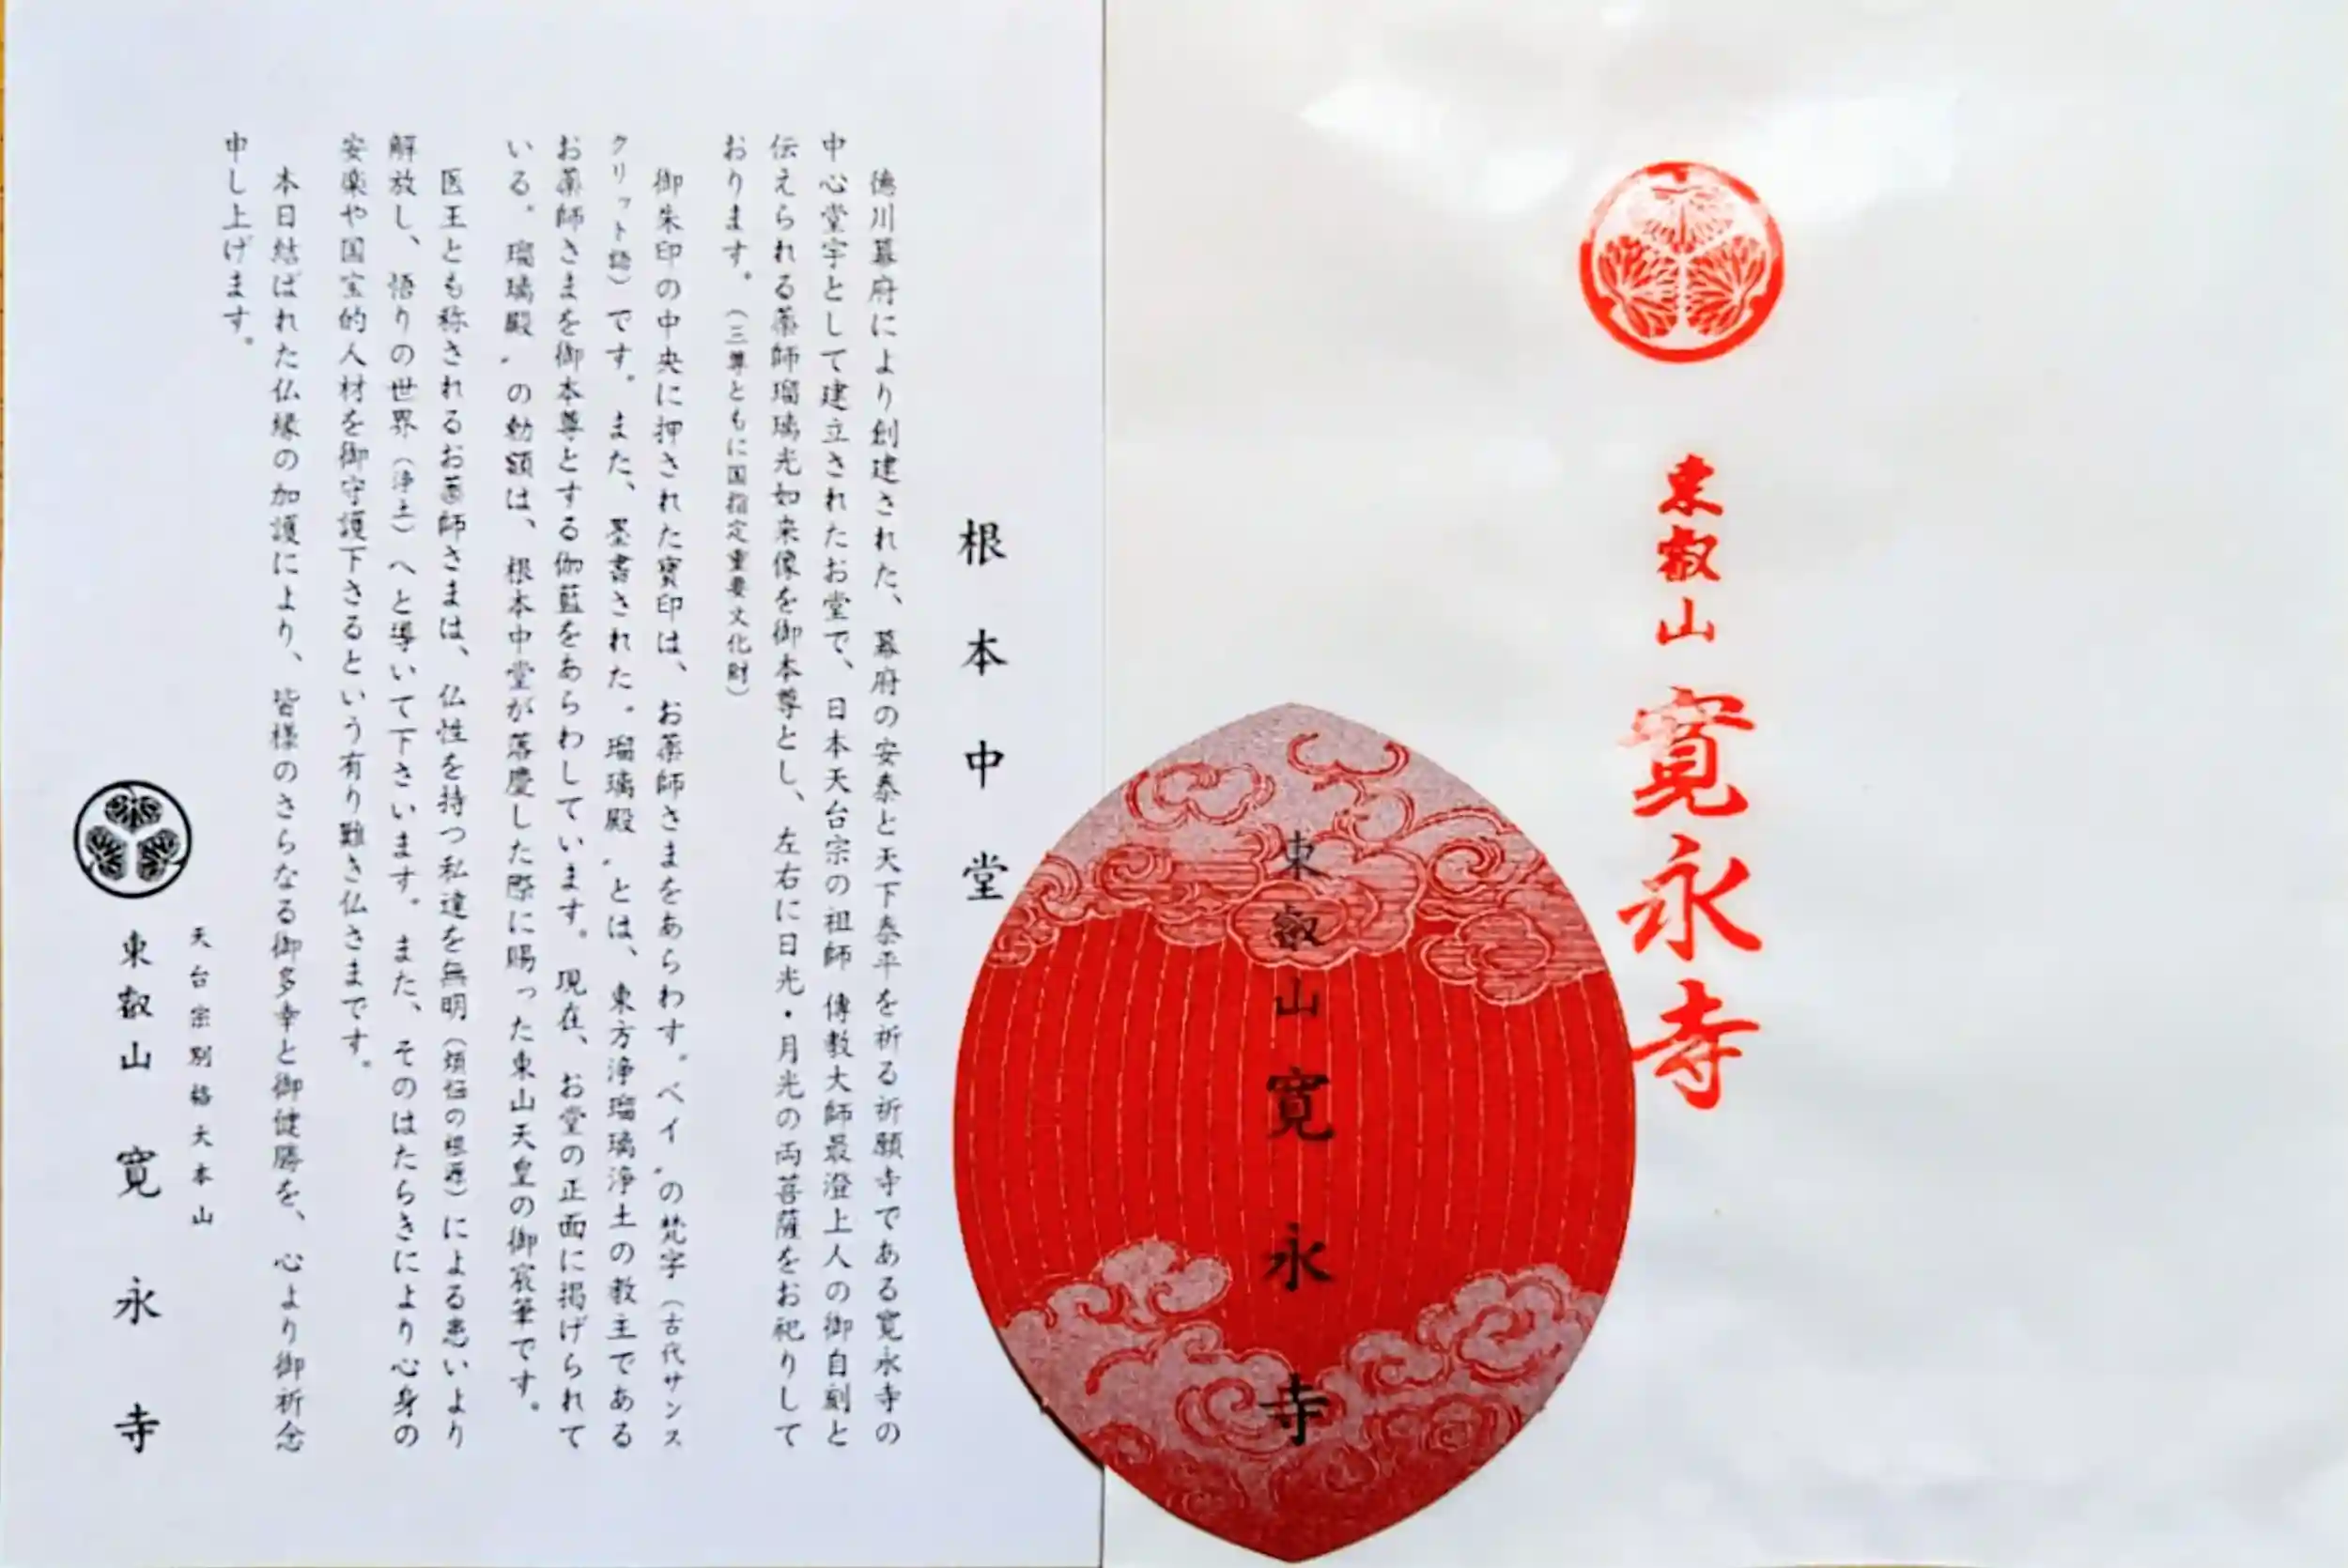 東叡山 寛永寺
東叡山 寛永寺
根本中堂
徳川幕府により創建された、幕府の安泰と天下泰平を祈る祈願寺である寛永寺の
中心堂宇として建立されたお堂で、日本天台宗の祖師 傳教大師最澄上人の御自刻と
伝えられる薬師瑠璃光如来像を御本尊とし、左右に日光・月光の両菩薩をお祀りして
おります。(三尊ともに国指定重要文化財)
御朱印の中央に押された寳印は、お薬師さまをあらわす〝ベイ〟の梵字(古代サンス
クリット語)です。また、墨書された〝瑠璃殿〟とは、東方浄瑠璃浄土の教主である
お薬師さまを御本尊とする伽藍をあらわしています。現在、お堂の正面に掲げられて
いる〝瑠璃殿〟の勅額は、根本中堂が落慶した際に賜った東山天皇の御宸筆です。
医王とも称されるお薬師さまは、仏性を持つ私達を無明(煩悩の根源)による患いより
解放し、悟りの世界(浄土)へと導いて下さいます。また、そのはたらきにより心身の
安楽や国宝的人材を御守護下さるという有り難き仏さまです。
本日結ばれた仏縁の加護により、皆様のさらなる御多幸と御健勝を、心より御祈念
申し上げます。
天台宗別格大本山
東叡山 寛永寺